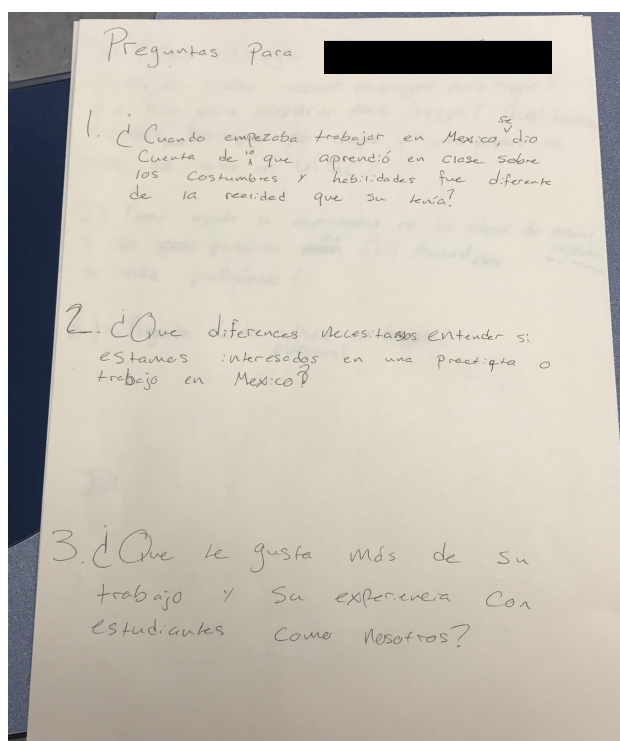 Preguntas para
1. ¿Cuando empezaba trabajar en Mexico, se dio
Cuenta de lo que aprendió en clase sobre
los costumbres y habilidades fue diferente
de la realidad que su tenía?
2. ¿Que diferences necesitamos entender si
estamos interesados en una practiqta o
trabajo en Mexico?
3. ¿Que le gusta más de su
trabajo y su experiencia con
estudiantes como nosotros?